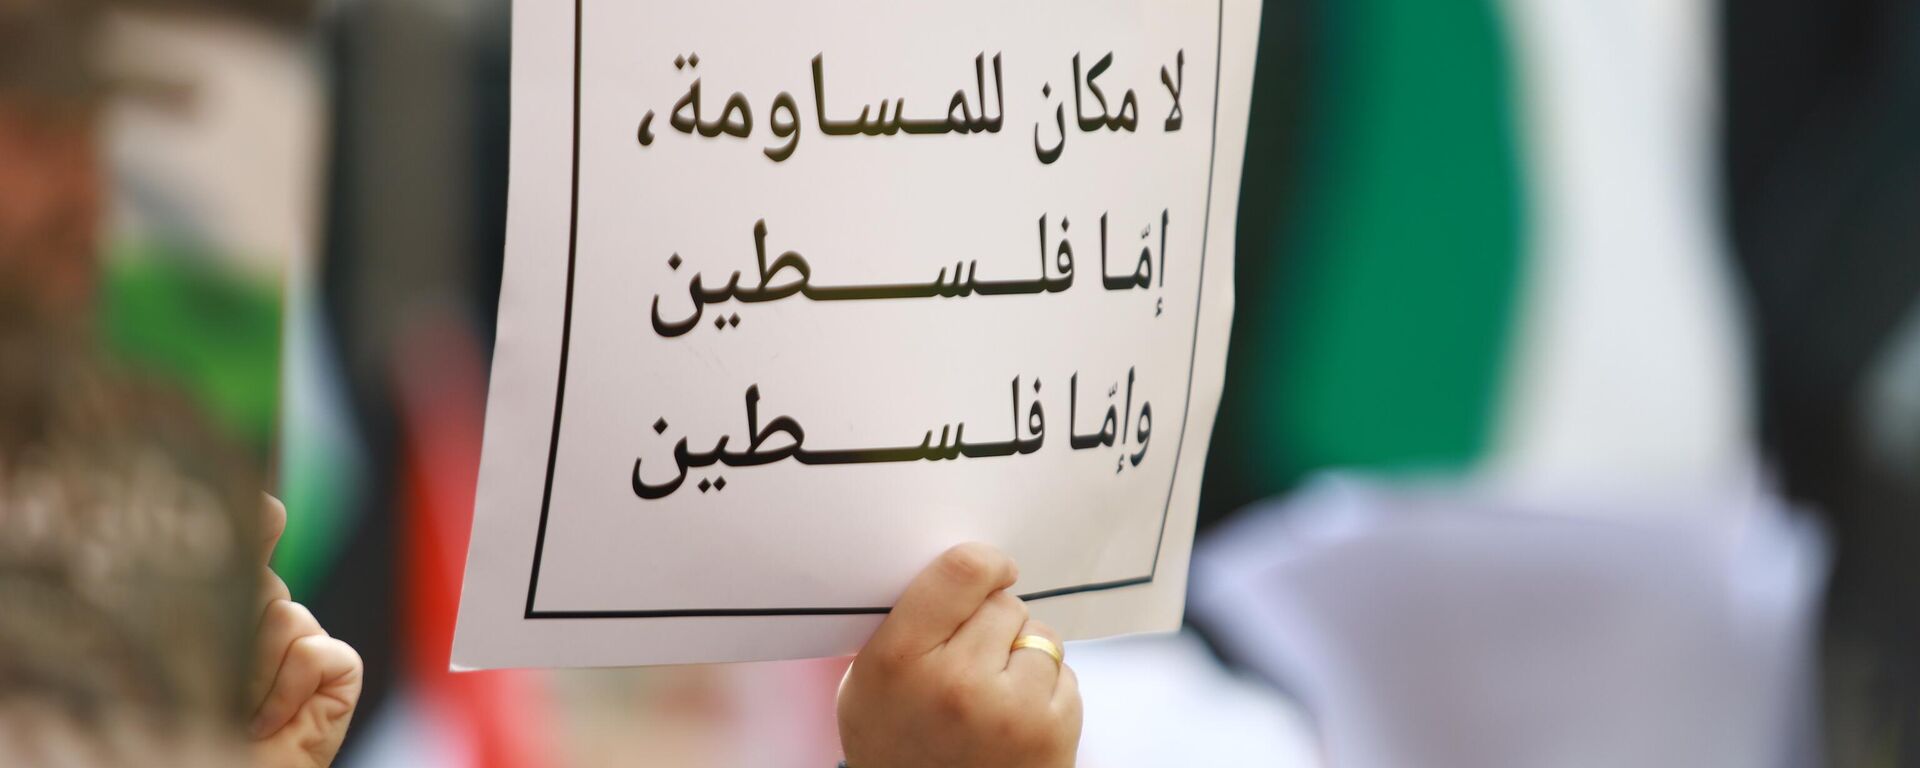 لا مكان للمساومة،
إمّا فلسطين
وإمّا فلسطين